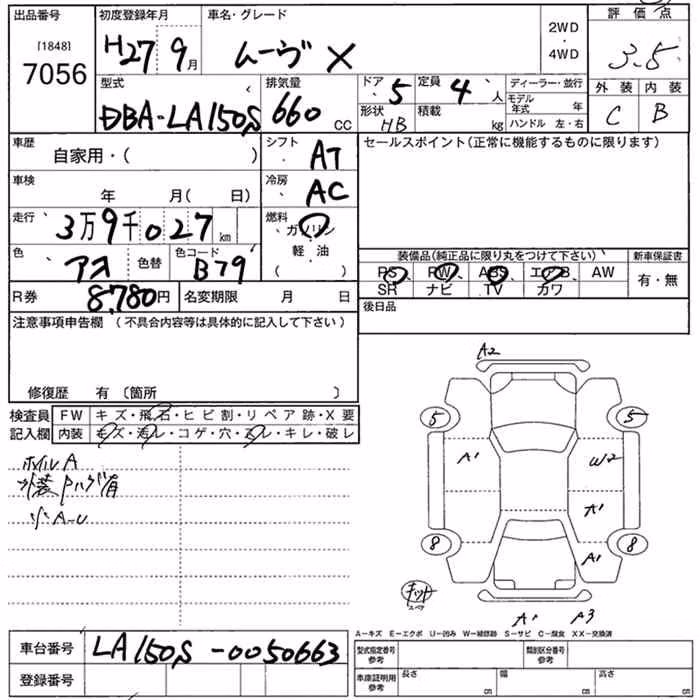 出品番号
[1848]
7056
初度登録年月
H27 9月
車名・グレード
ムーヴ X
2WD
・
4WD
評価点
3.5
外装 内装
C B
型式
DBA-LA150S
排気量
660 cc
ドア 5
形状 HB
定員 4 人
積載 kg
ディーラー・並行
モデル年式 年
ハンドル 左・右
車歴
自家用・( )
シフト AT
セールスポイント(正常に機能するものに限ります)
車検
年 月( 日)
冷房 AC
走行
3万9千027km
燃料
ガソリン
軽油
( )
色
アオ
色替
色コード
B79
装備品(純正品に限り丸をつけて下さい)
PS PW ABS エアB AW
SR ナビ TV カワ
新車保証書
有・無
R券 8,780円
名変期限 月 日
後日品
注意事項申告欄 (不具合内容等は具体的に記入して下さい)
修復歴 有 〔箇所 〕
検査員
記入欄
FW キズ・飛石・ヒビ割・リペア跡・X要
内装 キズ・汚レ・コゲ・穴・スレ・キレ・破レ
ホイルA
外装
有
小A-U
A2
5
5
A1
W2
A1
8
8
A1
キット
スペア
A1 A3
A-キズ E-エクボ U-凹み W-補修跡 S-サビ C-腐食 XX-交換済
車台番号
LA150S-0050663
登録番号
型式指定番号
参考
類別区分番号
参考
車庫証明用
参考
長さ cm
幅 cm
高さ cm